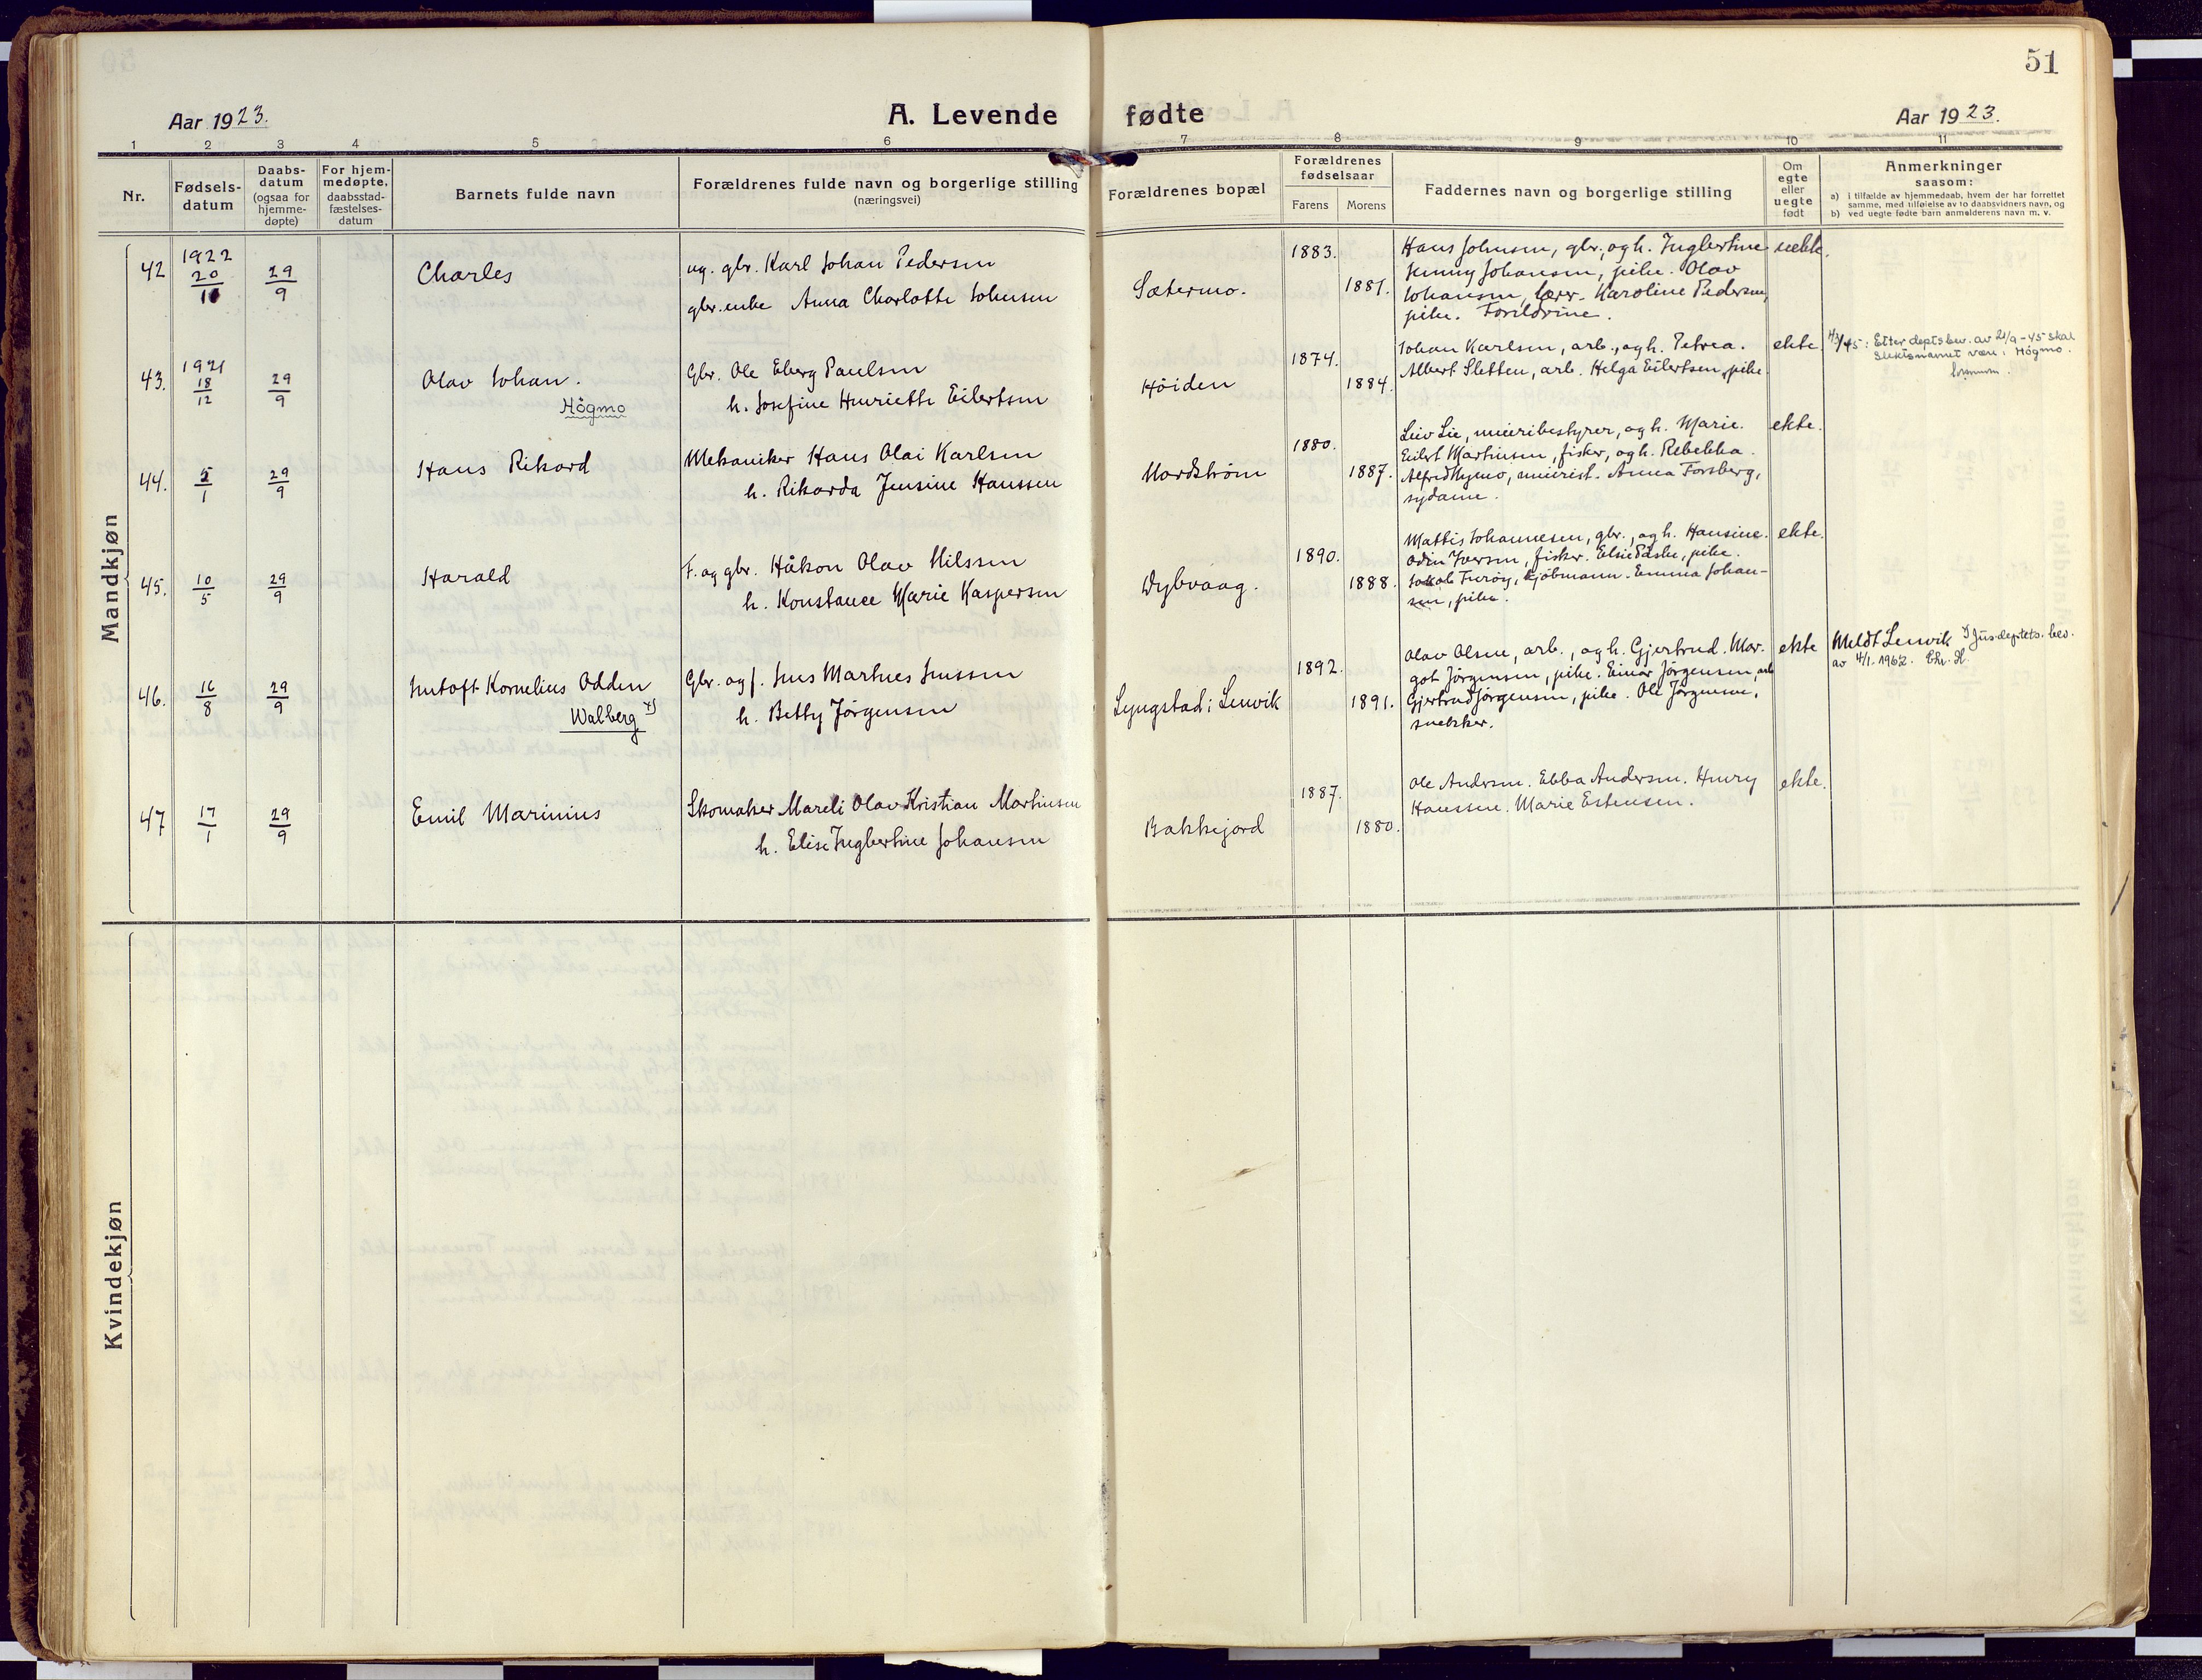 51
Aar 1923.
A. Levende fødte
Aar 1923.
1 2 3 4 5 6 7 8 9 10 11
Nr.
Fødsels-
datum
Daabs-
datum
(ogsaa for
hjemme-
døpte)
For hjem-
medøpte,
daabsstad-
fæstelses-
datum
Barnets fulde navn
Forældrenes fulde navn og borgerlige stilling
(næringsvei)
Forældrenes bopæl
Forældrenes
fødselsaar
Farens
Morens
Faddernes navn og borgerlige stilling
Om
egte
eller
uegte
født
Anmerkninger
saasom:
a) i tilfælde av hjemmedaab, hvem der har forrettet
samme, med tilføielse av to daabsvidners navn, og
b) ved uegte fødte barn anmelderens navn m. v.
Mandkjøn
42
1922
20/11
29/9
Charles
ug. gbr. Karl Johan Pedersen
gbr. enke Anna Charlotte Johnsen
Sætermo.
1883.
1881.
Hans Johnsen, gbr., og h. Ingbertine
Jenny Johansen, pike. Olav
Johansen, lærer. Karoline Pedersen,
pike. Foreldrine.
uekte.
43.
1921
18/12
29/9
Olav Johan.
Högmo
Gbr. Ole Eberg Paulsen
h. Josefine Henriette Eilertsen
Höiden
1874.
1884.
Johan Karlsen, arb., og h. Petrea.
Albert Sletten, arb. Helga Eilertsen, pike
ekte
Etter depts bev. av 21/9-45 skal
slektsnavnet være: Högmo.
44.
5/1
29/9
Hans Rikard
Mekaniker Hans Olai Karlsen
h. Rikarda Jensine Hanssen
Nordström
1880.
1887.
Leiv Lie, meieribestyrer, og h. Marie.
Eilert Martinsen, fisker, og h. Rebekka.
Alfred Nymo, meierist. Anna Forsberg,
sydame.
ekte.
45.
10/5
29/9
Harald
F. og gbr. Håkon Olav Nilssen
h. Konstance Marie Kaspersen
Dybvaag.
1890.
1888.
Mattis Johannesen, gbr., og h. Hansine.
Odin Iversen, fisker. Elsie Paske, pike.
Jakob Furöy, kjöbmann. Emma Johan-
sen, pike.
ekte.
46.
16/8
29/9
Jentoft Kornelius Odden
Walberg x)
Gbr. og f. Jens Martnes Jenssen
h. Betty Jörgensen
Lyngstad i Lenvik
1892.
1891.
Olav Olsen, arb., og h. Gjertrud. Mar-
got Jörgensen, pike. Einar Jörgensen, arb
Gjertrud Jörgensen, pike. Ole Jörgensen,
snekker.
ekte
Meldt Lenvik x) Jus. deptets. bev.
av 4/1. 1962. Chr. H.
47
17/1
29/9
Emil Marinius
Skomaker Mareli Olav Kristian Martinsen
h. Elise Ingbertine Johansen
Bakkejord
1887.
1880.
Ole Andersen. Ebba Andersen. Henry
Hanssen. Marie Estensen.
ekte.
Kvindekjøn